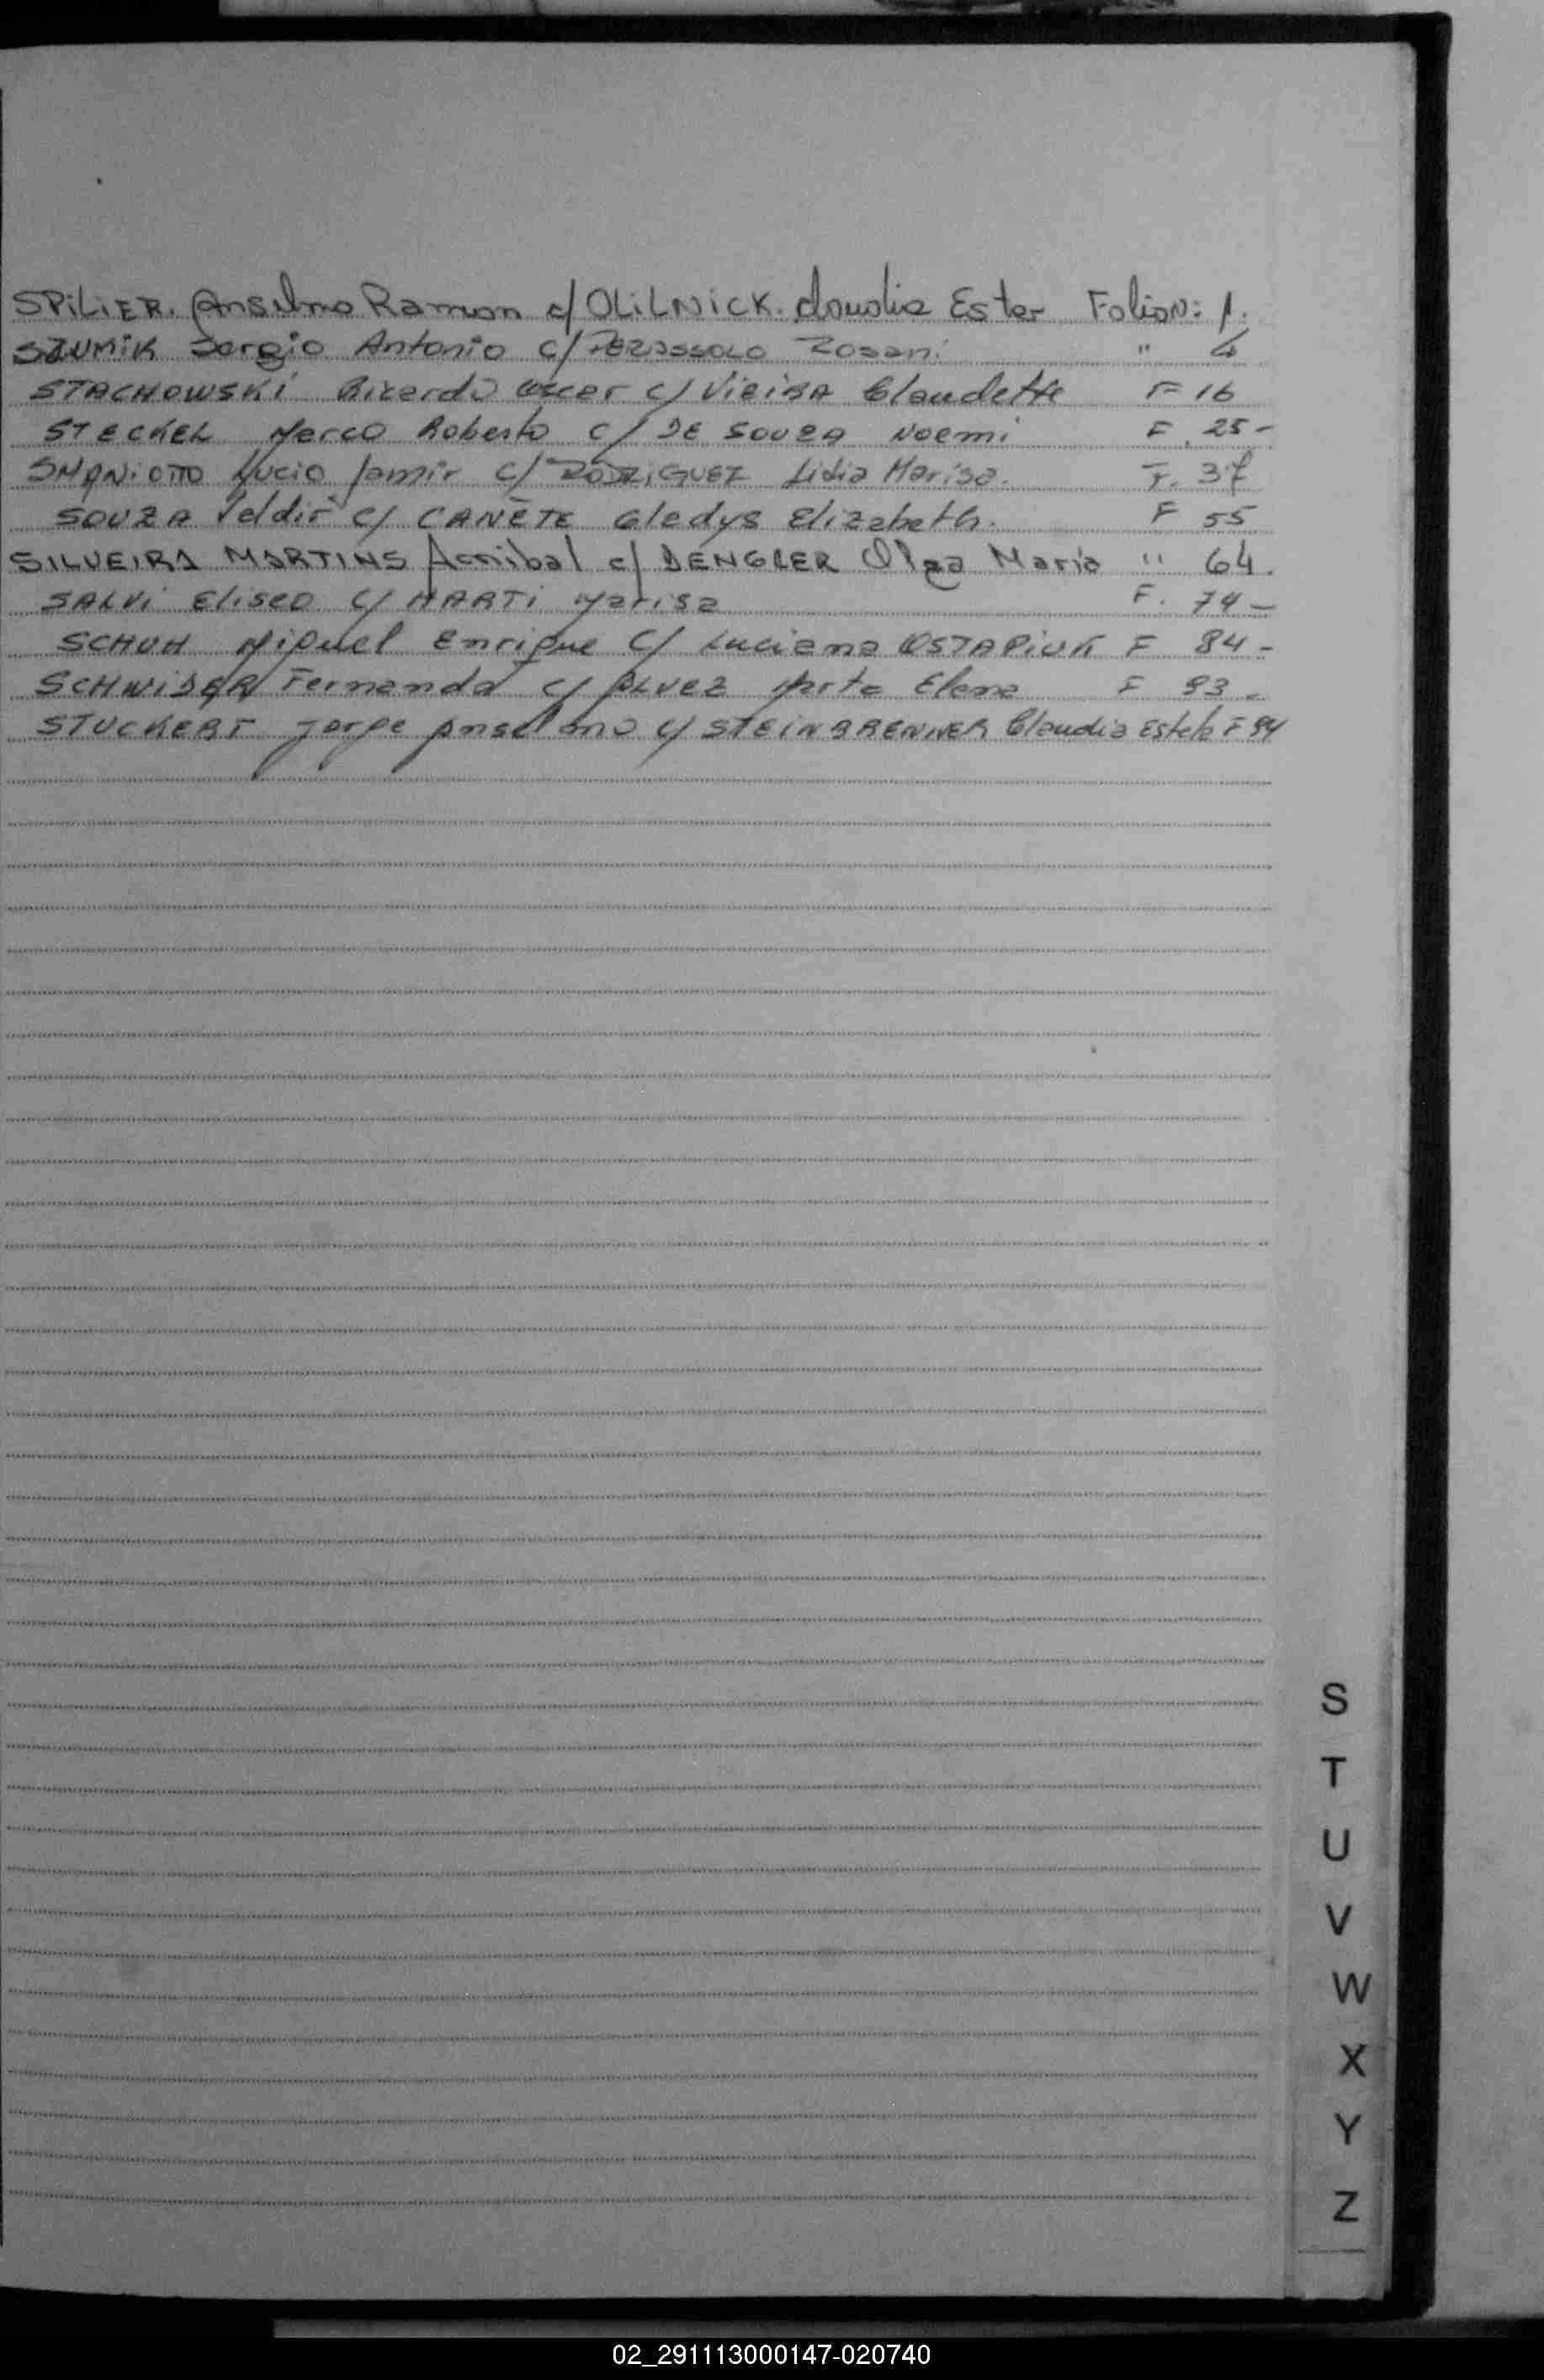 SPiLiER. Anselmo Ramon c/ OLiLNiCK. Claudia Ester Folio N: 1.
SZUMiK Sergio Antonio c/ PERASSOLO Rosani " 4
STACHOWSKi Ricardo Oscar c/ ViEiRA Claudette F 16
STECKEL Marco Roberto c/ DE SOUZA Noemi F. 25-
SMANiOTTO Lucio Jamir c/ RODRiGUEZ Lidia Marisa. F. 37
SOUZA Valdir c/ CAÑETE Gladys Elizabeth. F 55
SILVEIRA MARTINS Annibal c/ DENGLER Olga Maria " 64.
SALVi Eliseo c/ MARTi Marisa F. 74-
SCHUH Miguel Enrique c/ Luciana OSTAPiUK F 84-
Fernando c/ ALVEZ Marta Elena F 93-
STUCKERT Jorge Anselmo c/ STEiNBRENNER Claudia Estela F 94
S
T
U
V
W
X
Y
Z
02_291113000147-020740